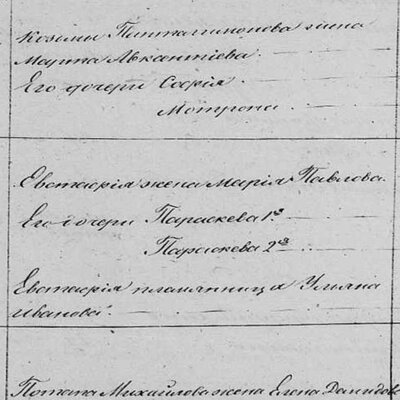 Козьмы Пинталимонова жена
Марта Авкантiева
Его дочери Софiя
Матрона
Евстафiя жена Марiя Павлова
Его дочери Параскева 1ᵃ
Параскева 2ᵃ
Евстафiя племянница Улiяна
Иванова
Потапа Михайлова жена Елена Давидов